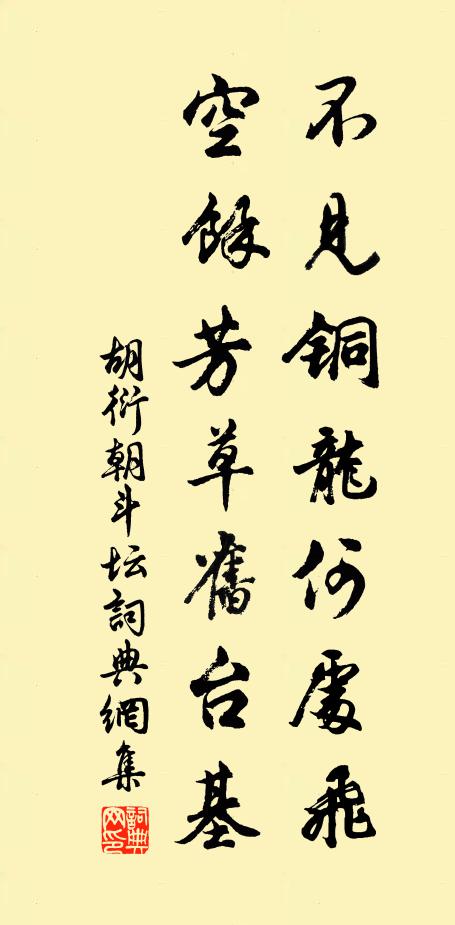 不見銅龍何處飛
空餘芳草舊台基
胡衍朝斗坛詞典網集
詞典网印